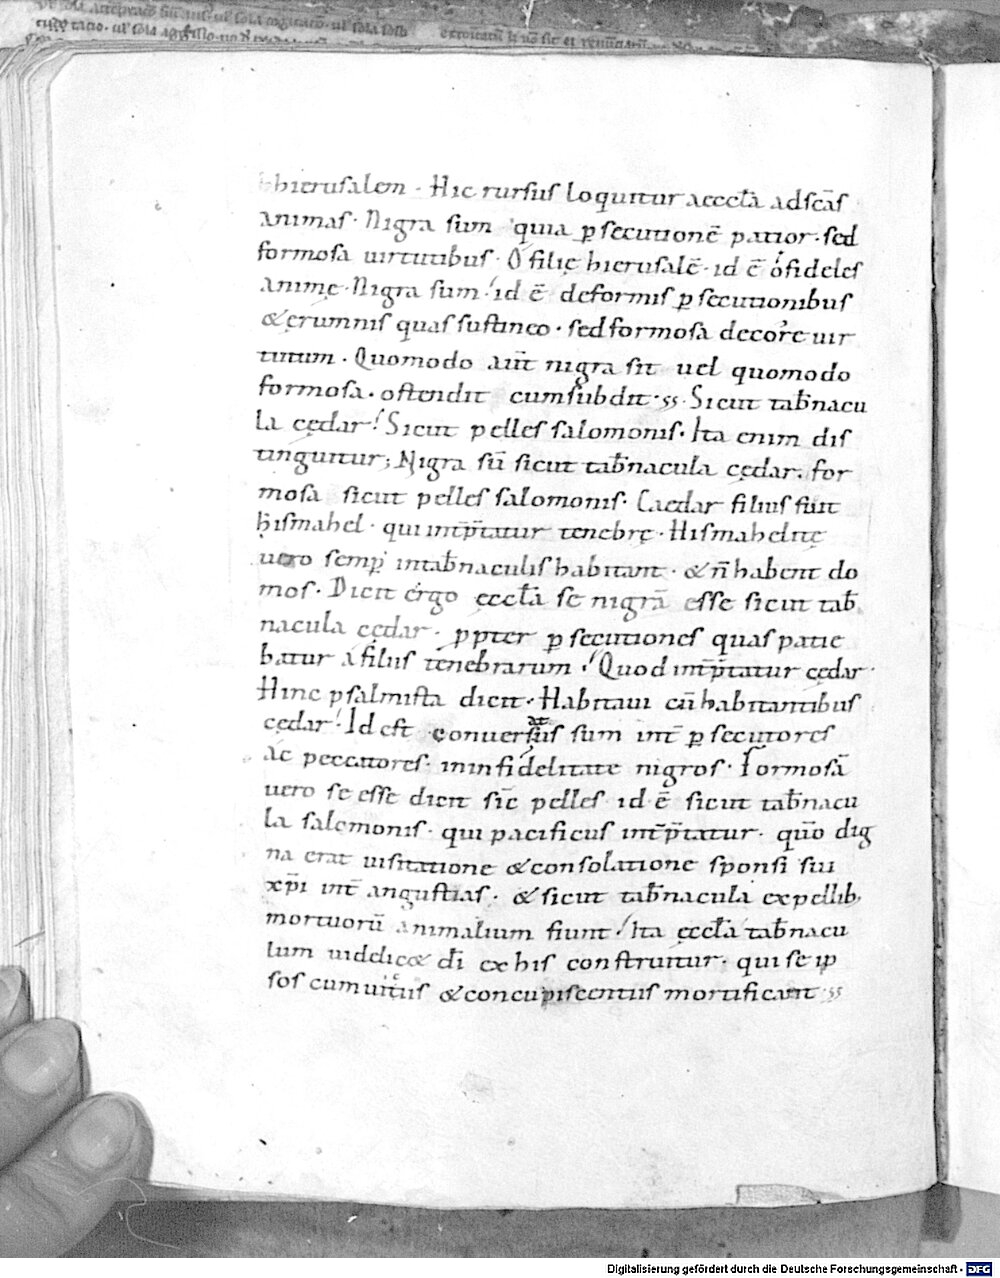 hierusalem · Hic rursus loquitur aeccła adscās
animas · Nigra sum quia ꝑsecutionē patior · sed
formosa uirtutibus · O filię hierusalē · id ē o fideles
animę · Nigra sum · id ē deformis ꝑsecutionibus
& ęrumnis quas sustineo · sed formosa decore uir
tutum · Quomodo aut̄ nigra sit uel quomodo
formosa · ostendit cum subdit · Sicut tab̄nacu
la cędar · Sicut pelles salomonis · Ita enim dis
tinguitur; Nigra sū sicut tab̄nacula cędar · for
mosa sicut pelles salomonis · Caedar filius fuit
hismahel · qui int̄p̄tatur tenebrę · Hismahelitę
uero semꝑ intab̄naculis habitant · & n̄ habent do
mos · Dicit ergo ęccła se nigrā esse sicut tab̄
nacula cędar · ꝓpter ꝑsecutiones quas patie
batur a filiis tenebrarum · Quod int̄p̄tatur cędar ·
Hinc psalmista dicit · Habitaui cū habitantibus
cędar · Id est conuersus sum int̄ ꝑsecutores
ac peccatores · in infidelitate nigros · Formosā
uero se esse dicit sic̄ pelles id ē sicut tab̄nacu
la salomonis · qui pacificus int̄p̄tatur · quō dig
na erat uisitatione & consolatione sponsi sui
xp̄i int̄ angustias · & sicut tab̄nacula expellib;
mortuorū animalium fiunt · Ita ęccła tab̄nacu
lum uidelic& dī ex his construitur · qui se ip
sos cum uitiis & concupiscentiis mortificant
Digitalisierung gefördert durch die Deutsche Forschungsgemeinschaft - DFG